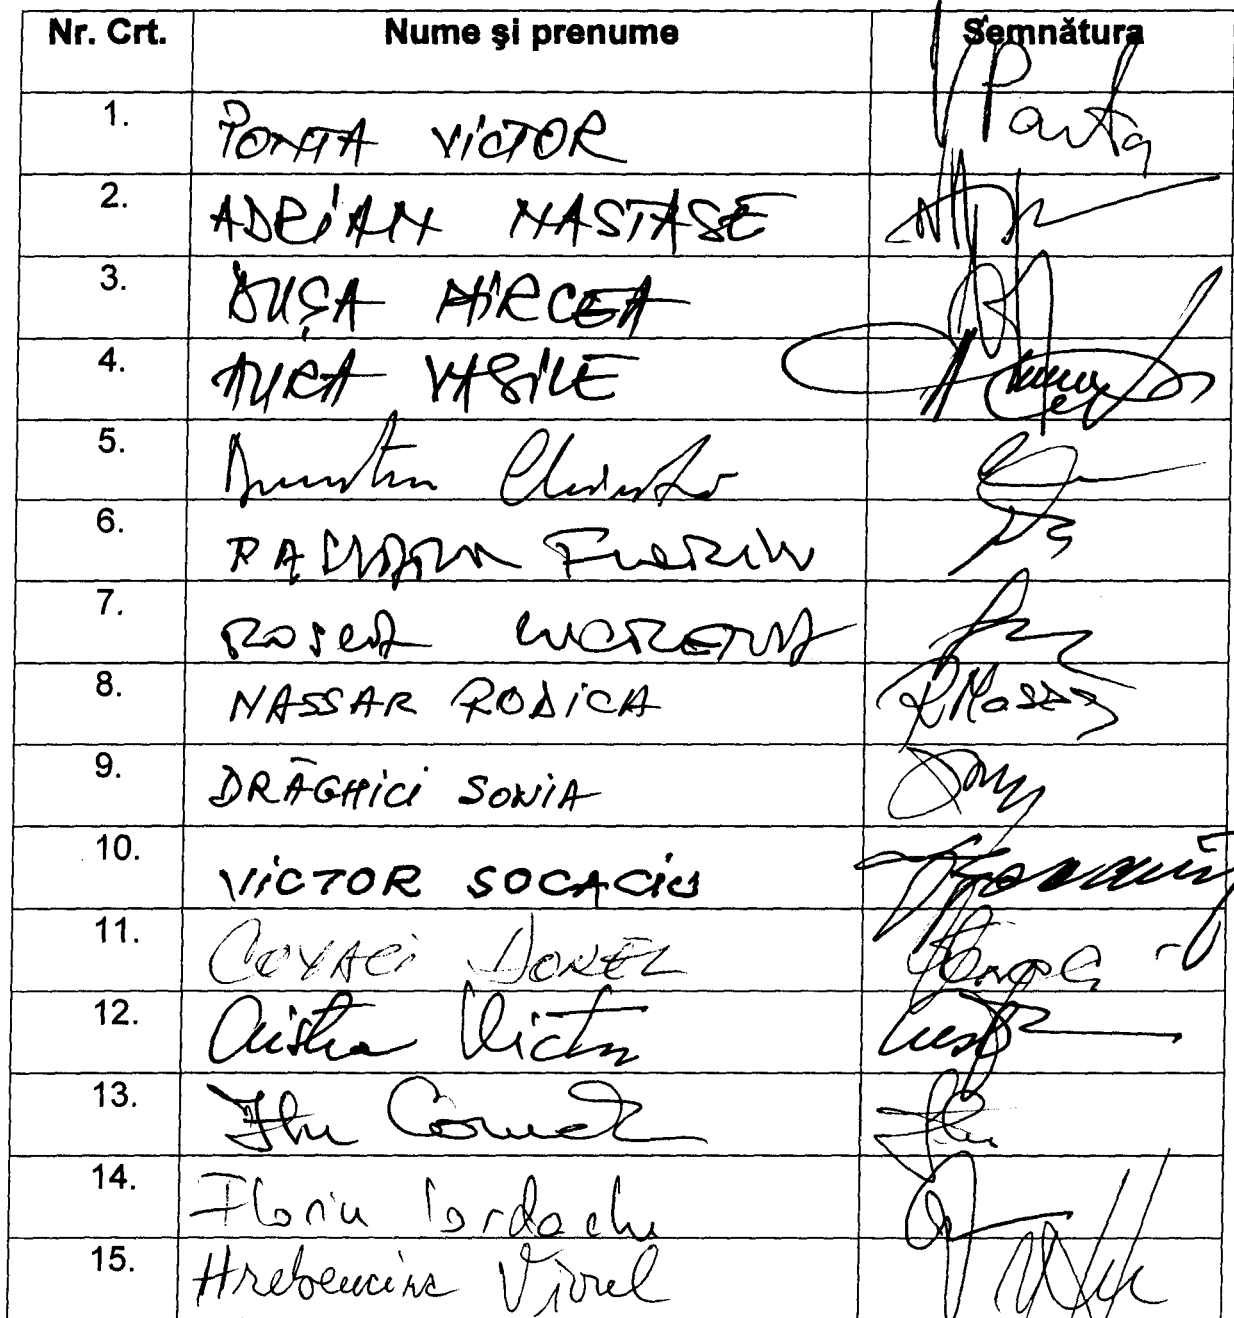 Nr. Crt. Nume şi prenume Semnătura
1. PONTA VICTOR VPonta
2. ADRIAN NASTASE
3. DUŞA MIRCEA
4. AURA VASILE
5. Dumitru Chiriță
6. Florin
7. ROȘCA LUCREȚIA
8. NASSAR RODICA RNassar
9. DRĂGHICI SONIA
10. VICTOR SOCACIU
11. COVACI DOREL
12. Cristea Victor
13. Itu Cornel Itu
14. Florin Iordache
15. Hrebenciuc Viorel